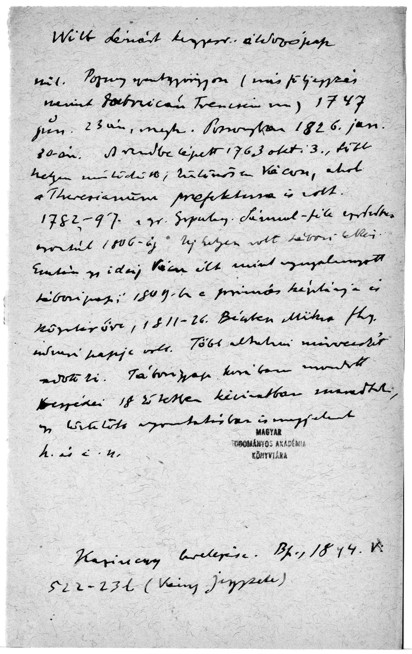 Willt Lénárt kegyesr. áldozópap
szül. Pozsony szentgyörgyön (más följegyzés
szerint Trencsén m.) 1747
jún. 23án, megh. Pozsonyban 1826. jan.
30-án. A rendbe lépett 1763 okt. 3., több
helyen működött, különösen Vácon, ahol
a Theresianum prefektusa is volt.
1782–97. a gr.
azontúl 1806-ig helyen volt tábori lelkész.
Ezután ideig Vácon élt mint nyugalmazott
tábori pap; 1809-be a primás káplánja és
könyvtárőre, 1811–26. Bécsben Miksa fhg.
udvari papja volt. Több alkalmi
adott ki. Tábori pap korában mondott
beszédei 18 kötetben kéziratban maradtak,
nyomtatásban is megjelent
h. és é. n.
MAGYAR
TUDOMÁNYOS AKADÉMIA
KÖNYVTÁRA
Kazinczy levelezése. Bp., 1894. V.
522–23 l. (Váczy jegyzete)